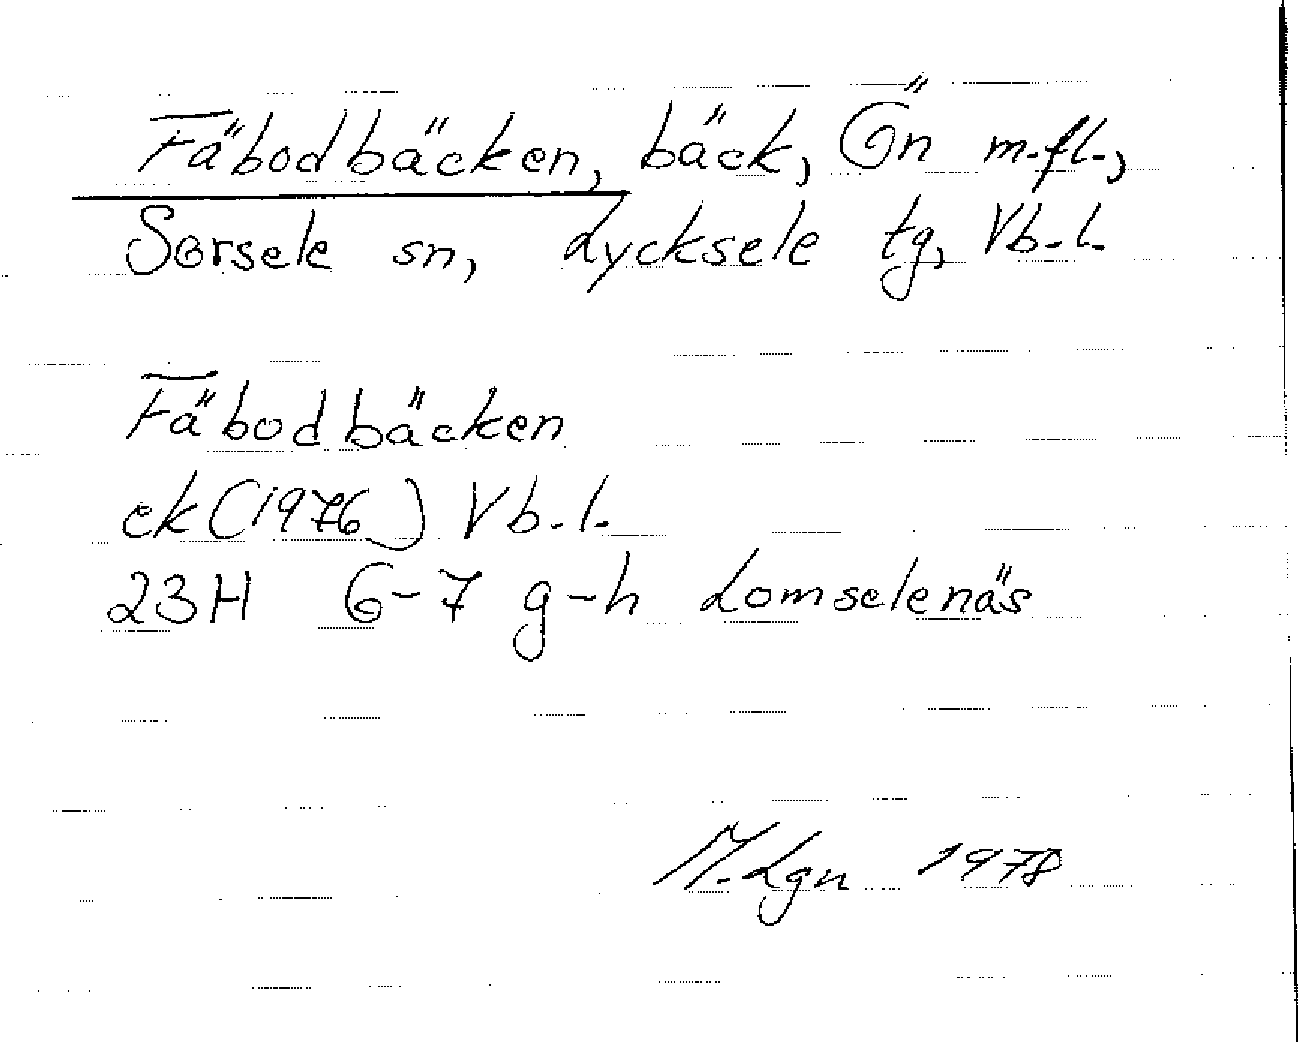 Fäbodbäcken, bäck, Ön m.fl.,
Sorsele sn, Lycksele tg, Vb.l.
Fäbodbäcken
ek (1976) Vb.l.
23H 6-7 g-h Lomselenäs
M.Lgn 1978